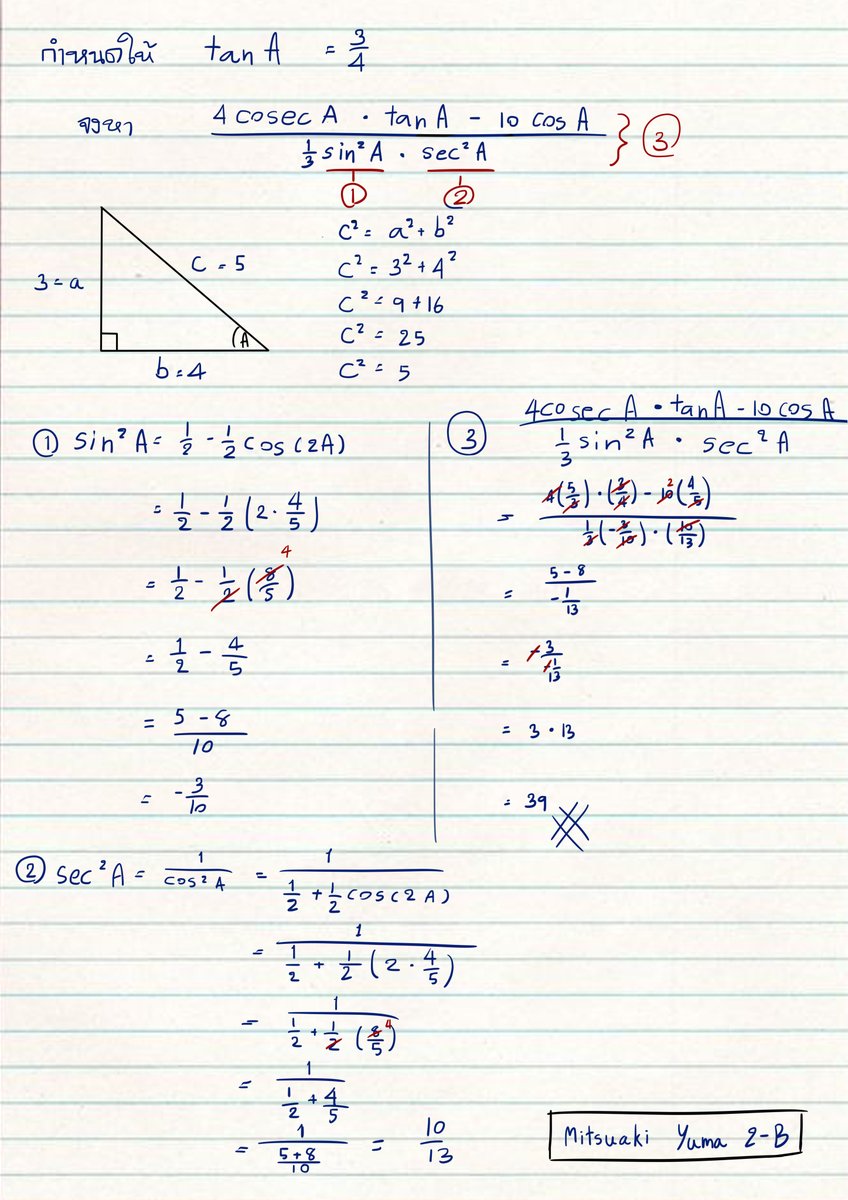 กำหนดให้ tan A = 3/4
จงหา (4 cosec A · tan A - 10 cos A) / (1/3 sin²A · sec²A) } ③
① ②
3 = a
c = 5
A
b = 4
c² = a² + b²
c² = 3² + 4²
c² = 9 + 16
c² = 25
c² = 5
① sin²A = 1/2 - 1/2 cos(2A)
= 1/2 - 1/2 (2 · 4/5)
= 1/2 - 1/2 (8/5) 4
= 1/2 - 4/5
= (5 - 8)/10
= -3/10
③ (4cosec A · tan A - 10 cos A) / (1/3 sin²A · sec²A)
= (4(5/3) · (3/4) - 10 2 (4/5)) / (1/3 (-3/10) · (10/13))
= (5 - 8) / (-1/13)
= -3 / (-1/13)
= 3 · 13
= 39
② sec²A = 1/cos²A = 1 / (1/2 + 1/2 cos(2A))
= 1 / (1/2 + 1/2 (2 · 4/5))
= 1 / (1/2 + 1/2 (8/5)) 4
= 1 / (1/2 + 4/5)
= 1 / ((5+8)/10) = 10/13
Mitsuaki Yuma 2-B